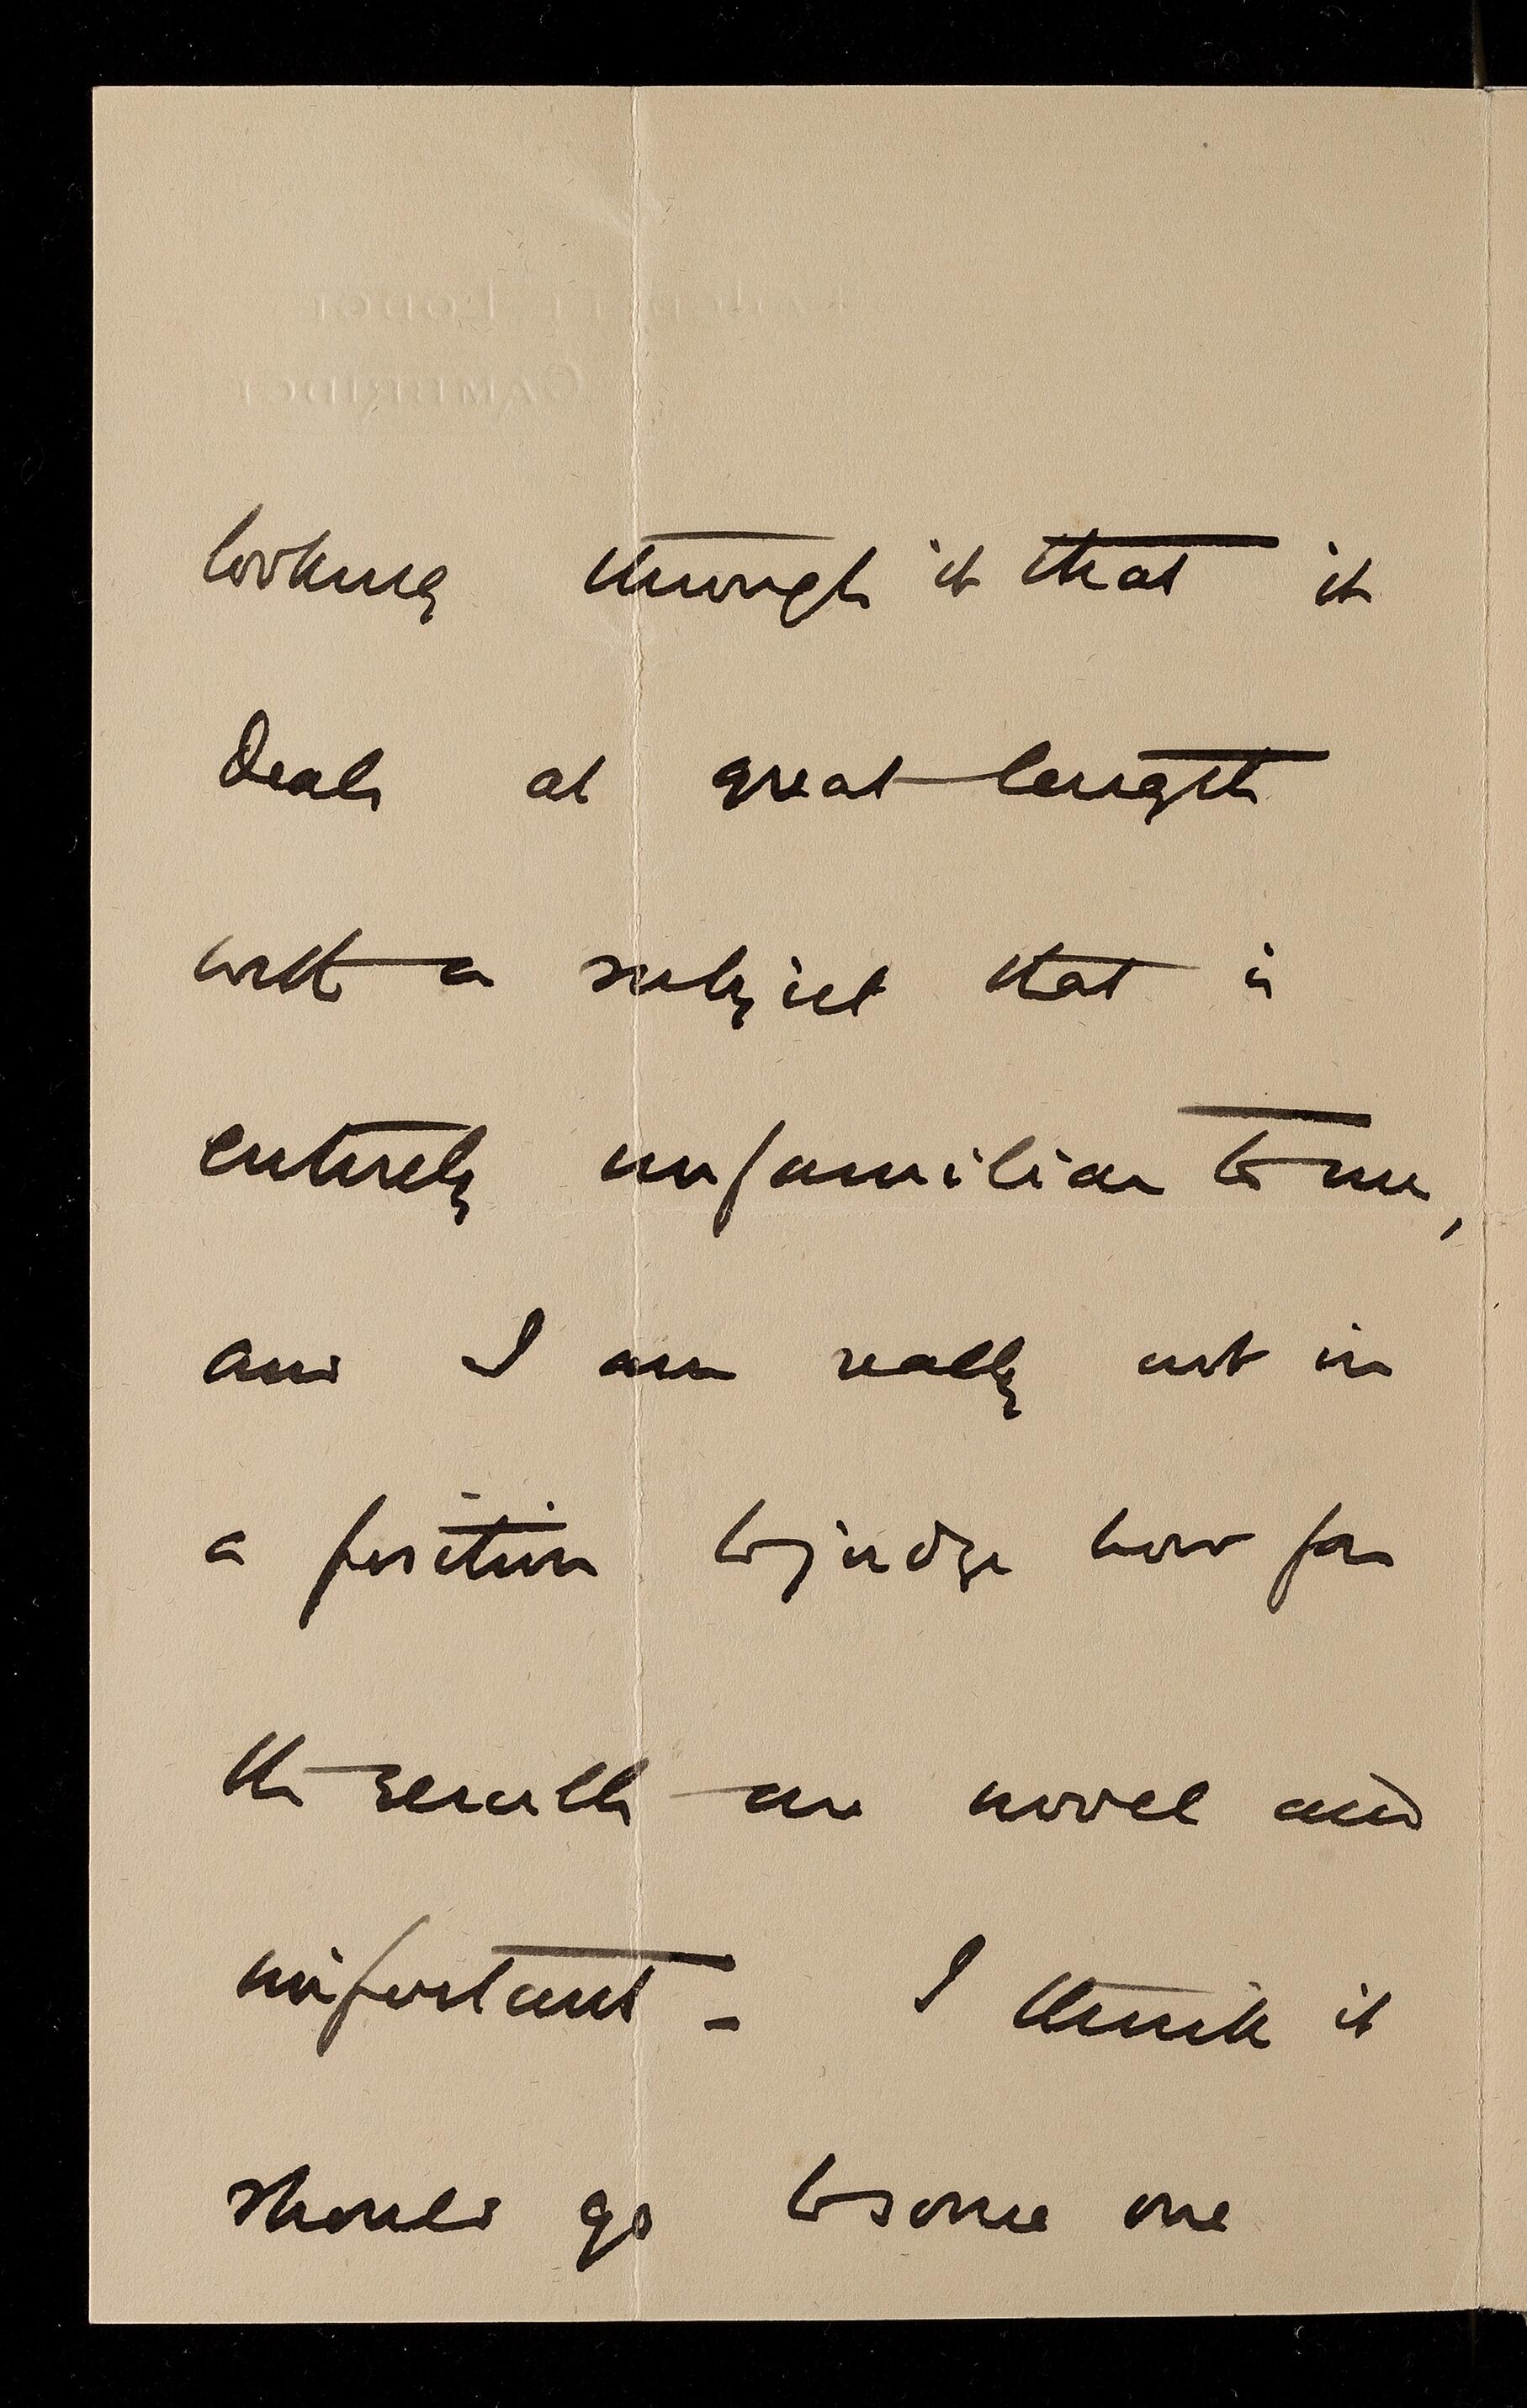 CAMBRIDGE
looking through it that it
deals at great length
with a subject that is
entirely unfamiliar to me,
and I am really not in
a position to judge how far
the results are novel and
important – I think it
should go to some one